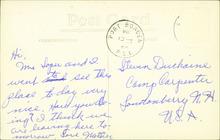 Post Card
Hi,
Mr Sopir and I
went to see this
place to day very
nice. How you do-
ing? I think we
are leaving here to-
morrow. Love
Steven Duchaine
Camp Carpenter
Londonderry N H
U.S.A.